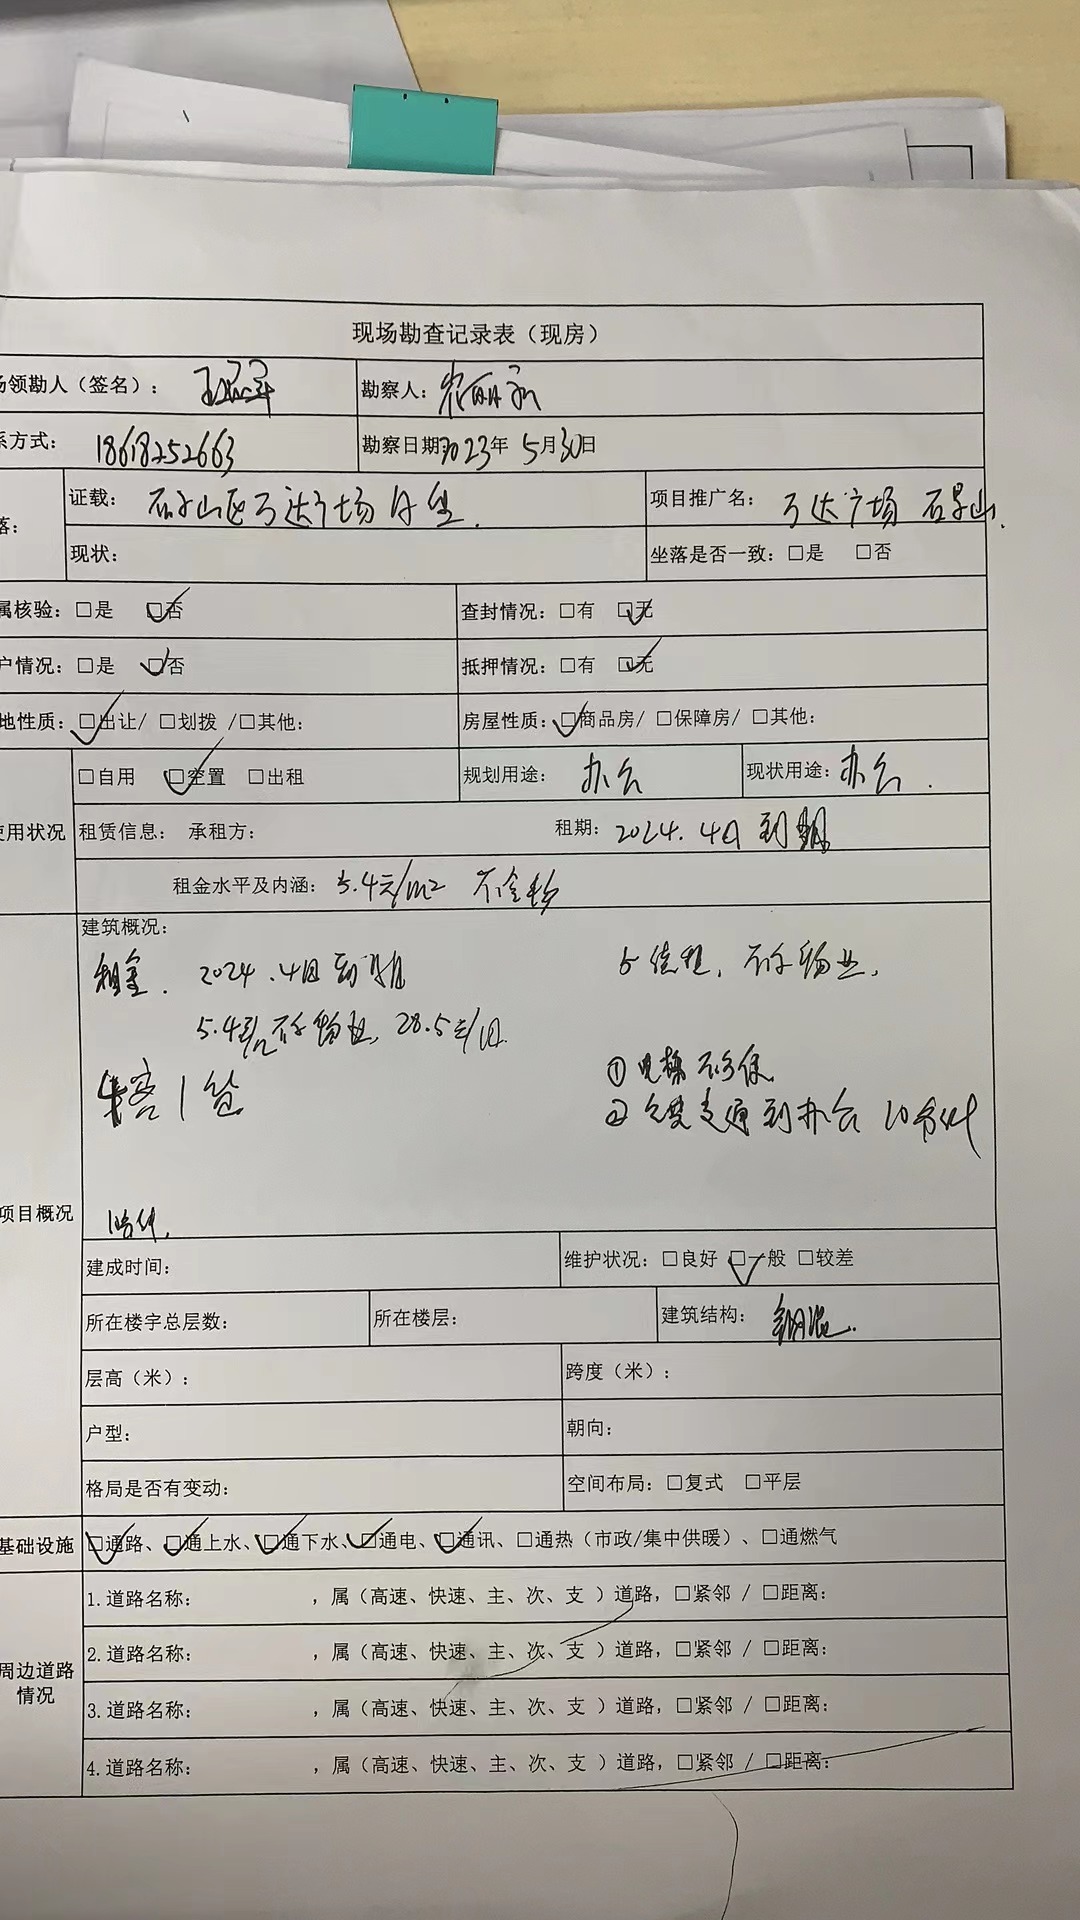 现场勘查记录表（现房）
场领勘人（签名）： 勘察人：
系方式： 18618252663 勘察日期：2023年 5月30日
落： 证载： 石景山区万达广场 座. 项目推广名： 万达广场 石景山.
现状： 坐落是否一致：□是 □否
属核验：□是 □否 查封情况：□有 □无
户情况：□是 □否 抵押情况：□有 □无
地性质：□出让/ □划拨 /□其他： 房屋性质：□商品房/ □保障房/ □其他：
□自用 □空置 □出租 规划用途： 办公 现状用途：办公.
使用状况 租赁信息： 承租方： 租期： 2024.4月 到期
租金水平及内涵： 5.4元/m2 不含物
建筑概况：
租金. 2024.4月 到期 不含物业.
5.4元/ 不含物业, 28.5元/月.
① 电梯
② 交通到办公 10分钟
项目概况
建成时间： 维护状况：□良好 □一般 □较差
所在楼宇总层数： 所在楼层： 建筑结构： 钢混.
层高（米）： 跨度（米）：
户型： 朝向：
格局是否有变动： 空间布局：□复式 □平层
基础设施 □通路、□通上水、□通下水、□通电、□通讯、□通热（市政/集中供暖）、□通燃气
1.道路名称： ，属（高速、快速、主、次、支 ）道路，□紧邻 / □距离：
2.道路名称： ，属（高速、快速、主、次、支 ）道路，□紧邻 / □距离：
周边道路情况
3.道路名称： ，属（高速、快速、主、次、支 ）道路，□紧邻 / □距离：
4.道路名称： ，属（高速、快速、主、次、支 ）道路，□紧邻 / □距离：